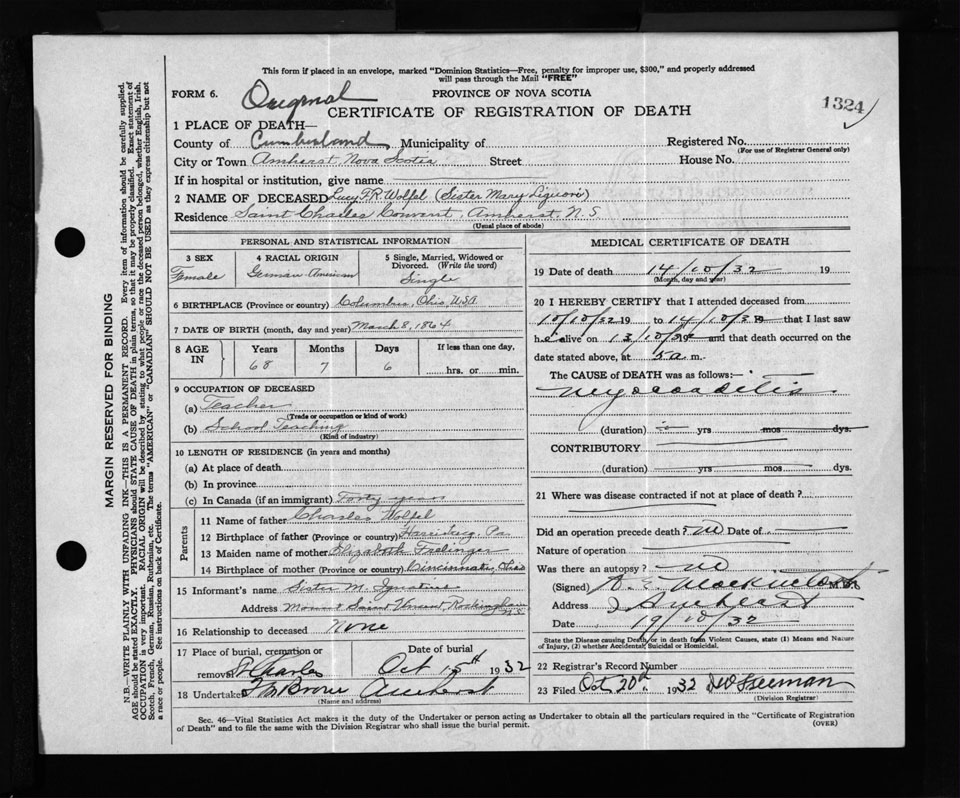 This form if placed in an envelope, marked "Dominion Statistics—Free, penalty for improper use, $300," and properly addressed
will pass through the Mail "FREE"
FORM 6.
Original
PROVINCE OF NOVA SCOTIA
CERTIFICATE OF REGISTRATION OF DEATH
1324
1 PLACE OF DEATH—
County of Cumberland Municipality of Registered No.
(For use of Registrar General only)
City or Town Amherst, Nova Scotia Street House No.
If in hospital or institution, give name
2 NAME OF DECEASED Lucy F.R. Wolfel (Sister Mary Liguori)
Residence Saint Charles Convent, Amherst, N.S
(Usual place of abode)
PERSONAL AND STATISTICAL INFORMATION
3 SEX
Female
4 RACIAL ORIGIN
German-American
5 Single, Married, Widowed or
Divorced. (Write the word)
Single
6 BIRTHPLACE (Province or country) Columbus, Ohio, USA
7 DATE OF BIRTH (month, day and year) March 8, 1864
8 AGE
IN
Years
68
Months
7
Days
6
If less than one day,
hrs. or min.
9 OCCUPATION OF DECEASED
(a) Teacher
(Trade or occupation or kind of work)
(b) School Teaching
(Kind of industry)
10 LENGTH OF RESIDENCE (in years and months)
(a) At place of death
(b) In province
(c) In Canada (if an immigrant) Forty years
Parents
11 Name of father Charles Wolfel
12 Birthplace of father (Province or country) Pa.
13 Maiden name of mother Elizabeth
14 Birthplace of mother (Province or country) Cincinnati, Ohio
15 Informant's name Sister M. Ignatius
Address Mount Saint Vincent, Rockingham
N.S.
16 Relationship to deceased None
17 Place of burial, cremation or
removal St Charles
Date of burial
Oct 15th 1932
18 Undertaker Amherst
(Name and address)
MEDICAL CERTIFICATE OF DEATH
19 Date of death 14/10/32 19
(Month, day and year)
20 I HEREBY CERTIFY that I attended deceased from
10/10/32 19 to 14/10/32 that I last saw
h alive on 13/10/ and that death occurred on the
date stated above, at 5 a m.
The CAUSE of DEATH was as follows:—
Myocarditis
(duration) yrs mos dys.
CONTRIBUTORY
(duration) yrs mos dys.
21 Where was disease contracted if not at place of death?
Did an operation precede death? no Date of
Nature of operation
Was there an autopsy? no
(Signed) M.D.
Address Amherst
Date 19/10/32
State the Disease causing Death, or in death from Violent Causes, state (1) Means and Nature
of Injury, (2) whether Accidental, Suicidal or Homicidal.
22 Registrar's Record Number
23 Filed Oct 20th. 1932 Freeman
(Division Registrar)
Sec. 46—Vital Statistics Act makes it the duty of the Undertaker or person acting as Undertaker to obtain all the particulars required in the "Certificate of Registration
of Death" and to file the same with the Division Registrar who shall issue the burial permit.
(OVER)
MARGIN RESERVED FOR BINDING
N.B.—WRITE PLAINLY WITH UNFADING INK—THIS IS A PERMANENT RECORD. Every item of information should be carefully supplied.
AGE should be stated EXACTLY. PHYSICIANS should STATE CAUSE OF DEATH in plain terms, so that it may be properly classified. Exact statement of
OCCUPATION is very important. RACIAL ORIGIN will be described by stating to what people or race the deceased person belonged, whether English, Irish,
Scotch, French, German, Russian, Ruthenian, etc. The terms "AMERICAN" or "CANADIAN" SHOULD NOT BE USED as they express citizenship but not
a race or people. See instructions on back of Certificate.